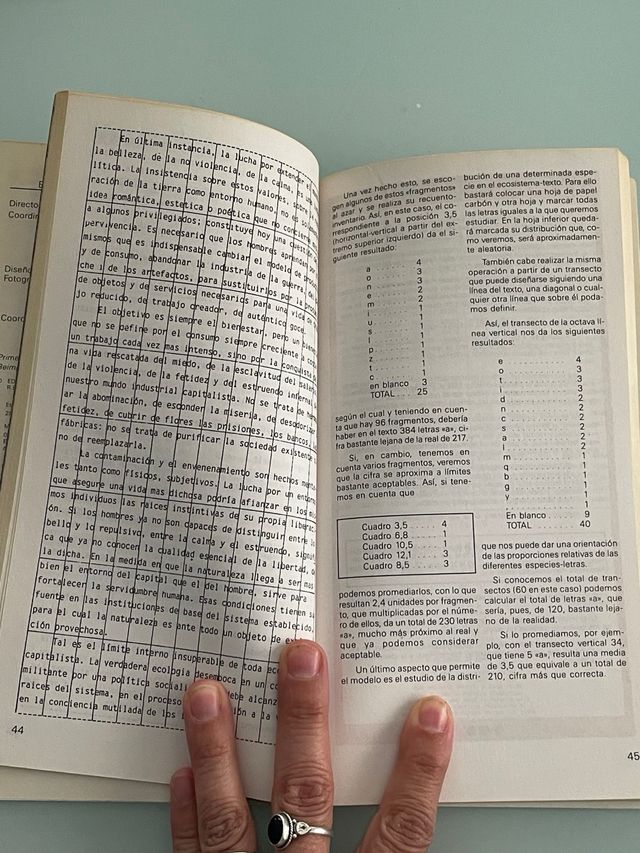 Directo
Coordin
Diseño
Fotogr
Coord
Prime
Reim
En última instancia, la lucha por extender el
la belleza, de la no violencia, de la calma, es
lítica. La insistencia sobre estos valores, sobre
ración de la tierra como entorno humano, no es sólo
idea romántica, estética o poética que no concierne
a algunos privilegiados; constituye hoy una cuestión
pervivencia. Es necesario que los hombres aprendan por
mismos que es indispensable cambiar el modelo de
y de consumo, abandonar la industria de la guerra, del
che i de los artefactos, para sustituirlos por la
de objetos y de servicios necesarios para una vida de
jo reducido, de trabajo creador, de auténtico goce.
El objetivo es siempre el bienestar, pero un
que no se define por el consumo siempre creciente a
un trabajo cada vez mas intenso, sino por la conquista
na vida rescatada del miedo, de la esclavitud del
de la violencia, de la fetidez y del estruendo infernal
nuestro mundo industrial capitalista. No se trata de
ar la abominación, de esconder la miseria, de desodorizar
fetidez, de cubrir de flores las prisiones, los bancos,
fábricas: no se trata de purificar la sociedad existente
no de reemplazarla.
La contaminación y el envenenamiento son hechos
les tanto como físicos, subjetivos. La lucha por un
que asegure una vida mas dichosa podría afianzar en los
mos individuos las raices instintivas de su propia
ón. Si los hombres ya no son capaces de distinguir entre lo
bello y lo repulsivo, entre la calma y el estruendo,
ca que ya no conocen la cualidad esencial de la libertad,
la dicha. En la medida en que la naturaleza llega a ser mas
bien el entorno del capital que el del hombre, sirve para
fortalecer la servidumbre humana. Esas condiciones tienen su
fuente en las instituciones de base del sistema establecido,
para el cual la naturaleza es ante todo un objeto de
ción provechosa.
Tal es el límite interno insuperable de toda
capitalista. La verdadera ecología desemboca en un
militante por una política debe
raices del sistema, en el proceso
en la conciencia mutilada de los a la
44
Una vez hecho esto, se esco-
gen algunos de estos «fragmentos»
al azar y se realiza su recuento-
inventario. Así, en este caso, el co-
rrespondiente a la posición 3,5
(horizontal-vertical a partir del ex-
tremo superior izquierdo) da el si-
guiente resultado:
a 4
o 3
n 3
e 2
m 2
i 1
u 1
s 1
l 1
p 1
z 1
t 1
c 1
en blanco 3
TOTAL 25
según el cual y teniendo en cuen-
ta que hay 96 fragmentos, debería
haber en el texto 384 letras «a», ci-
fra bastante lejana de la real de 217.
Si, en cambio, tenemos en
cuenta varios fragmentos, veremos
que la cifra se aproxima a límites
bastante aceptables. Así, si tene-
mos en cuenta que
Cuadro 3,5 4
Cuadro 6,8 1
Cuadro 10,5 1
Cuadro 12,1 3
Cuadro 8,5 3
podemos promediarlos, con lo que
resultan 2,4 unidades por fragmen-
to, que multiplicadas por el núme-
ro de ellos, da un total de 230 letras
«a», mucho más próximo al real y
que ya podemos considerar
aceptable.
Un último aspecto que permite
el modelo es el estudio de la distri-
bución de una determinada espe-
cie en el ecosistema-texto. Para ello
bastará colocar una hoja de papel
carbón y otra hoja y marcar todas
las letras iguales a la que queremos
estudiar. En la hoja inferior queda-
rá marcada su distribución que, co-
mo veremos, será aproximadamen-
te aleatoria.
También cabe realizar la misma
operación a partir de un transecto
que puede diseñarse siguiendo una
línea del texto, una diagonal o cual-
quier otra línea que sobre él poda-
mos definir.
Así, el transecto de la octava lí-
nea vertical nos da los siguientes
resultados:
e 4
o 3
t 3
i 3
d 2
n 2
c 2
s 2
a 2
l 2
m 1
q 1
b 1
g 1
y 1
. 1
En blanco 9
TOTAL 40
que nos puede dar una orientación
de las proporciones relativas de las
diferentes especies-letras.
Si conocemos el total de tran-
sectos (60 en este caso) podemos
calcular el total de letras «a», que
sería, pues, de 120, bastante leja-
no de la realidad.
Si lo promediamos, por ejem-
plo, con el transecto vertical 34,
que tiene 5 «a», resulta una media
de 3,5 que equivale a un total de
210, cifra más que correcta.
45